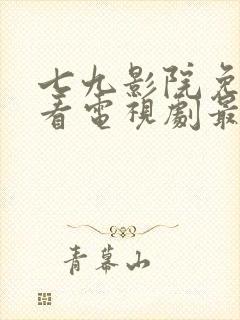 七九影院免
看電視劇最
青幕山